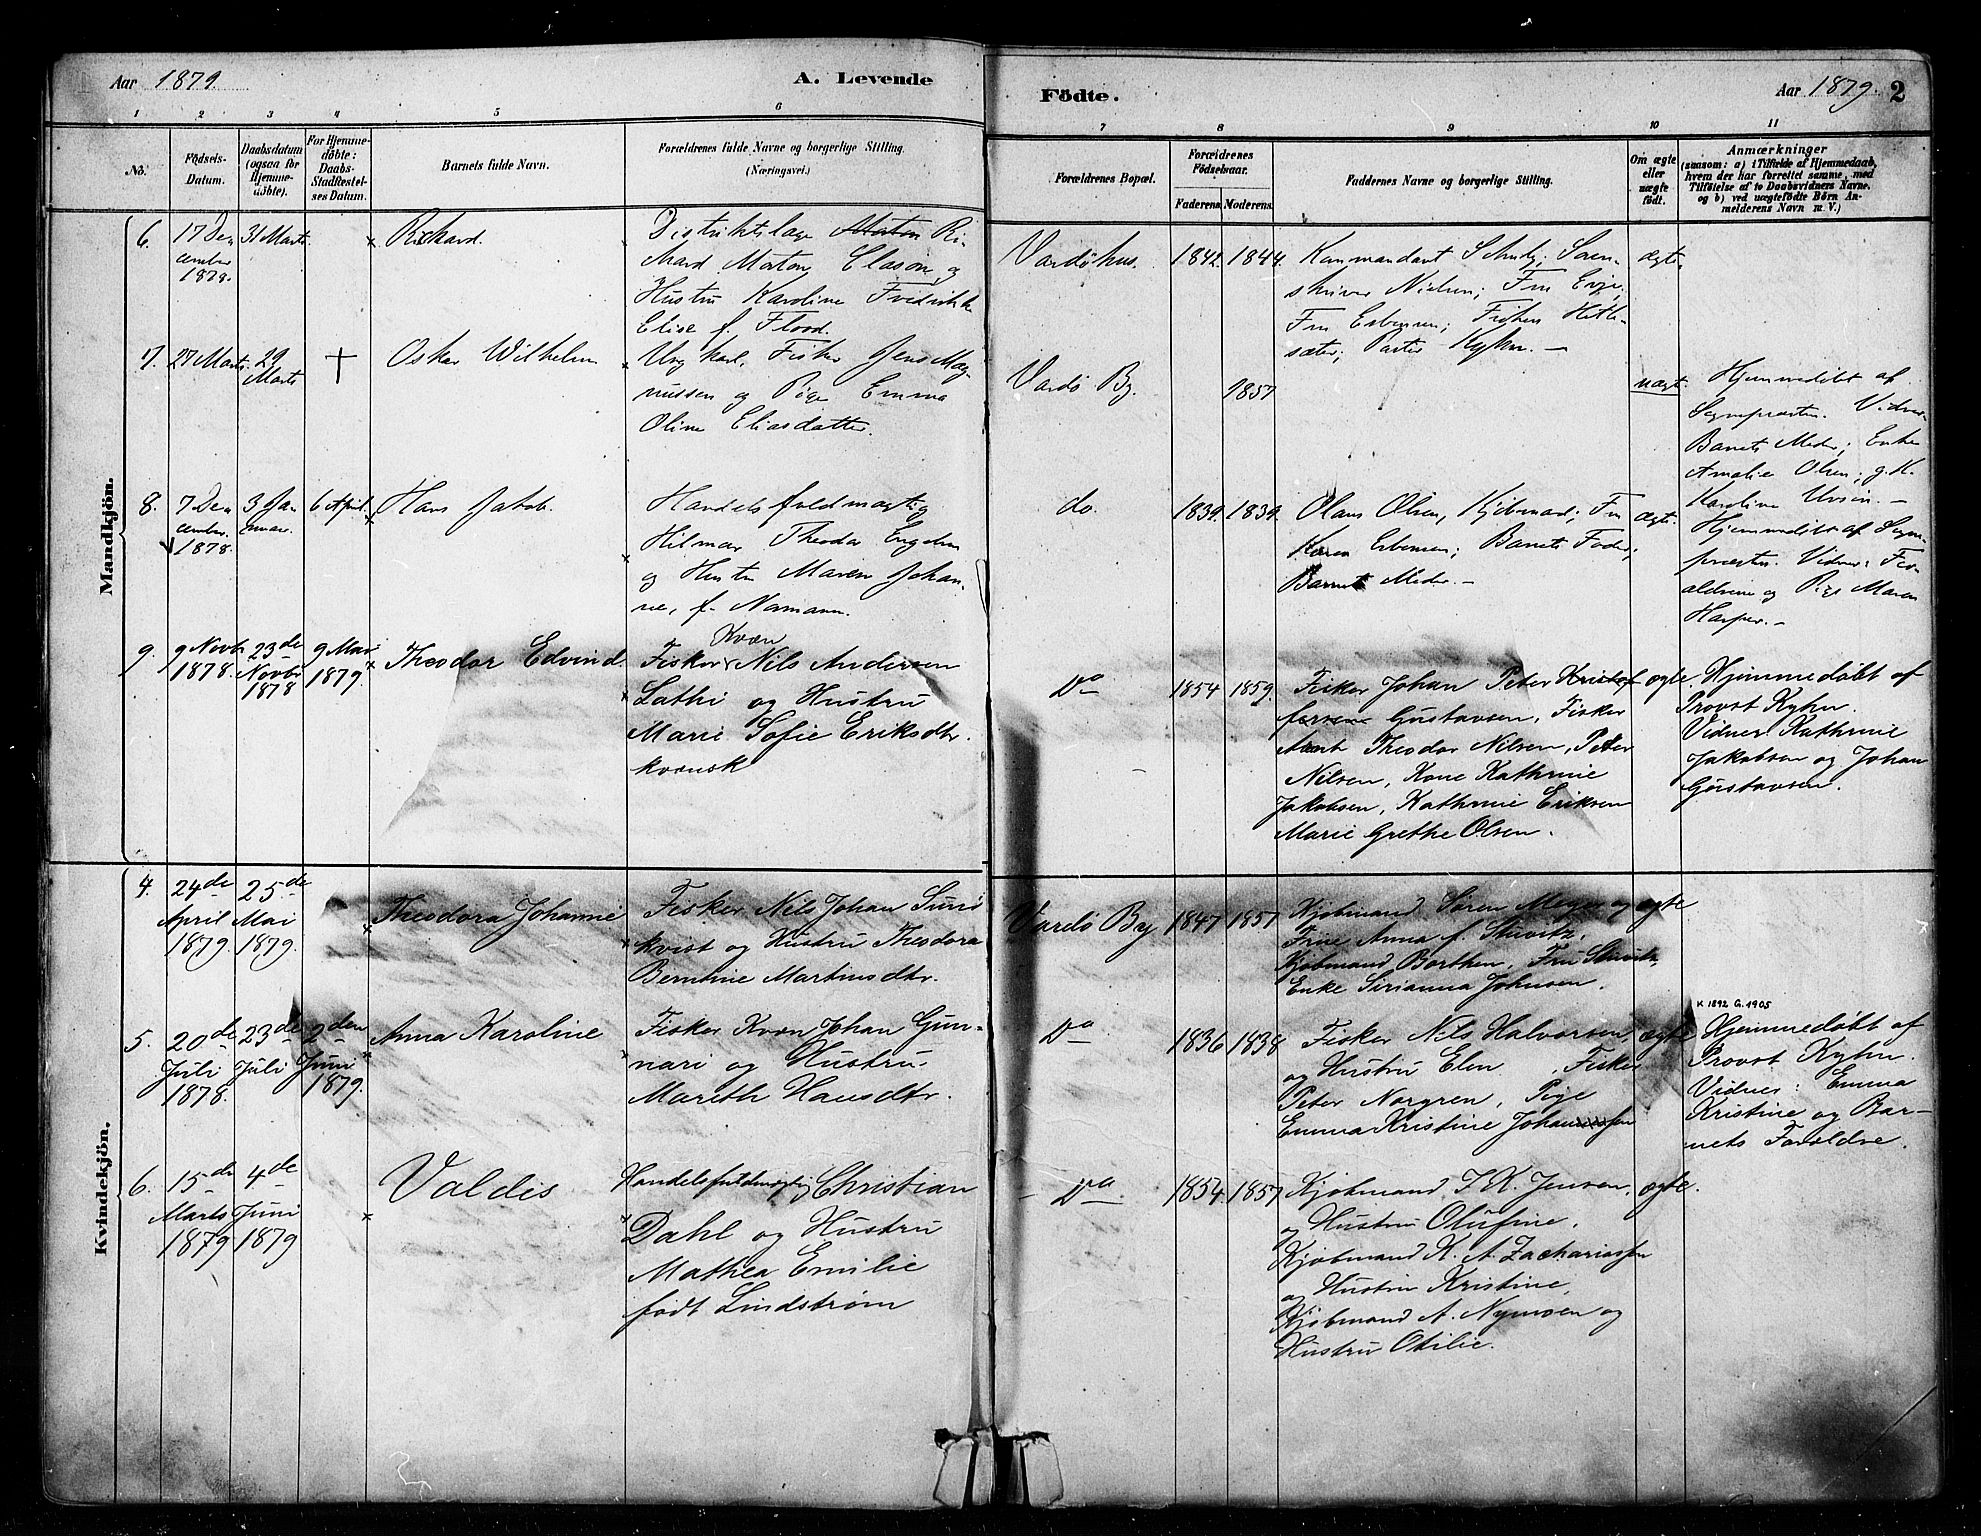 Aar 1879.
A. Levende
Födte.
Aar 1879. 2
1 2 3 4 5 6 7 8 9 10 11
No.
Födsels-
Datum.
Daabsdatum
(ogsaa for
Hjemme-
döbte).
For Hjemme-
döbte:
Daabs-
Stadfestel-
ses Datum.
Barnets fulde Navn.
Forældrenes fulde Navne og borgerlige Stilling.
(Næringsvei.)
Forældrenes Bopæl.
Forældrenes
Födselsaar.
Faderens. Moderens.
Faddernes Navne og borgerlige Stilling.
Om ægte
eller
uægte
födt.
Anmærkninger
(saasom: a) i Tilfælde af Hjemmedaab,
hvem der har forrettet samme, med
Tilföielse af to Daabsvidners Navne.
og b) ved uægtefödte Börn An-
melderens Navn m V.)
Mandkjön.
6.
17 De-
cember
1878.
31 Marts
Richard.
Distriktslæge Morton Ri-
chard Morton Clason og
Hustru Karoline Fredrikke
Elise f. Flood.
Vardøhus.
1842. 1844.
Kommandant Schulz; Soren-
skriver Nielsen; Fru Evje;
Fru Esbensen; Frøken Heth-
sæter; Pastor Kyhn. —
ægte.
7.
27 Marts.
29
Marts
†
Oskar Wilhelm
Ung karl, Fisker Jens Mag-
nussen og Pige Emma
Oline Eliasdatter.
Vardö By.
1857
uægt.
Hjemmedöbt af
Sognepræsten. Vidner
Barnets Moder; Enke
Amalie Olsen; g. K.
Karoline
8.
7 De-
cember
1878.
3 Ja-
nuar.
6 April.
Hans Jakob.
Handelsfuldmægtig
Hilmar Theodor Engelm
og Hustru Maren Johan-
ne, f. Namann.
do.
1839. 1839.
Olaus Olsen, Kjöbmand; Fru
Karen Esbensen; Barnets Fader;
Barnets Moder. —
ægte.
Hjemmedöbt af Sogne-
præsten. Vidner: For-
ældrene og Pige Maren
Harper. —
9.
9 Novbr
1878.
23de
Novbr
1878
9 Mai
1879.
Theodor Edvind.
Kvæn
Fisker Nils Andersen
Lathi og Hustru
Marie Sofie Eriksdtr.
kvænsk
Do
1854 1859.
Fisker Johan Peter Kristof
fersen Gustavsen, Fisker
Arnt Theodor Nilsen, Peter
Nilsen, Kone Kathrine
Jakobsen, Kathrine Eriksen
Marie Grethe Olsen.
ægte
Hjemmedøbt af
Provst Kyhn.
Vidner Kathrine
Jakobsen og Johan
Gustavsen.
Kvindekjön.
4.
24de
April
1879.
25de
Mai
1879.
Theodora Johanne
Fisker Nils Johan Sund
kvist og Hustru Theodora
Berntine Martinsdtr.
Vardö By
1847 1857
Kjöbmand Søren Meyer og
Frue Anna f. Stuvitz,
Kjöbmand Borthen, Fru Stuvitz,
Enke Sirianna Johnsen.
ægte
5.
20de
Juli
1878.
23de
Juli
2den
Juni
1879.
Anna Karoline
Fisker Kvæn Johan Gun-
nari og Hustru
Mareth Hansdtr.
Do
1836 1838
Fisker Nils Halvorsen,
og Hustru Elen, Fisker
Peter Norgren, Pige
Emma Kristine Johannessen
ægte
K 1892 G. 1905
Hjemmedøbt af
Provst Kyhn.
Vidner: Emma
Kristine og Bar-
nets Forældre.
6.
15de
Marts
1879
4de
Juni
1879
Valdis
Handelsfuldmægtig Christian
Dahl og Hustru
Mathea Emilie
født Lindstrøm
Do
1854. 1857
Kjöbmand I. K. Jensen,
og Hustru Olufine,
Kjöbmand K. A. Zachariassen
og Hustru Kristine,
Kjöbmand A. Nymoen og
Hustru Otilie.
ægte.